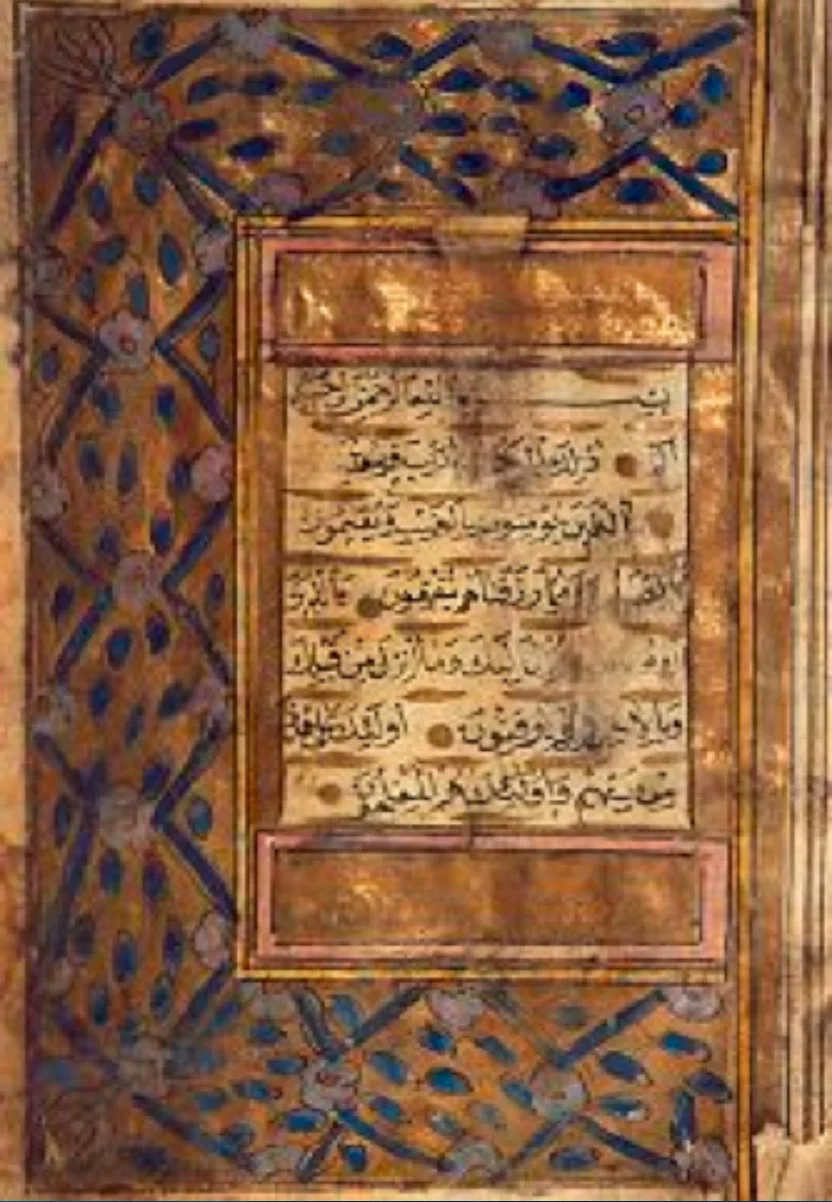 بسم الله الرحمن الرحيم
الم ذلك الكتاب لا ريب فيه هدى
الذين يؤمنون بالغيب ويقيمون
الصلاة ومما رزقناهم ينفقون والذين
أنزل إليك وما أنزل من قبلك
وبالآخرة هم يوقنون أولئك على هدى
من ربهم وأولئك هم المفلحون